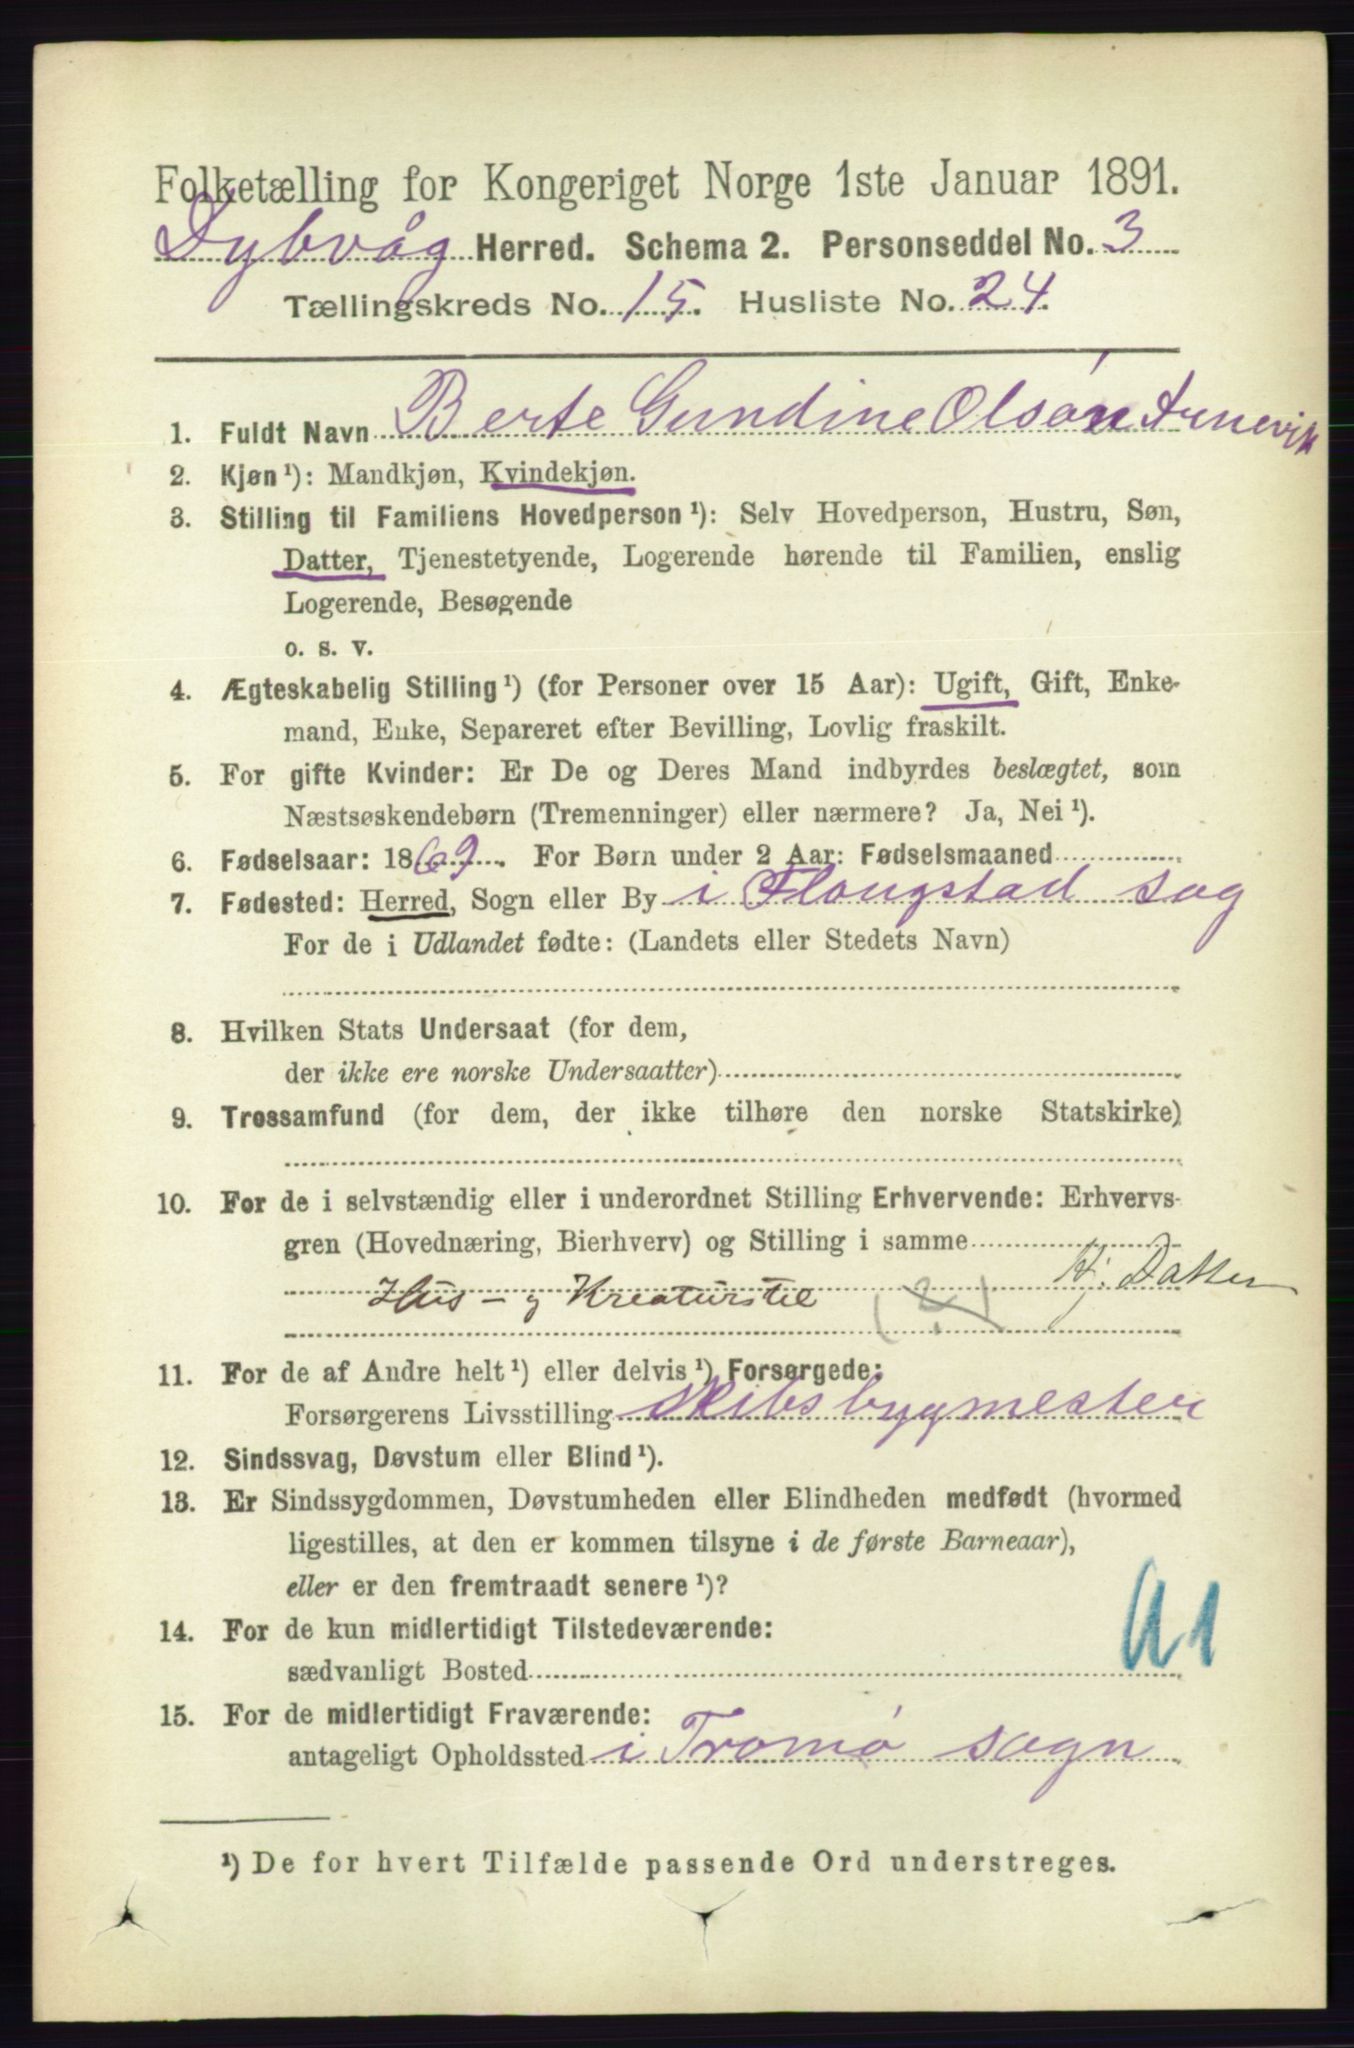 Folketælling for Kongeriget Norge 1ste Januar 1891.
Dybvåg Herred. Schema 2. Personseddel No. 3
Tællingskreds No. 15. Husliste No. 24.
1. Fuldt Navn Berte Gundine Olsøn Arnevik
2. Kjøn¹): Mandkjøn, Kvindekjøn.
3. Stilling til Familiens Hovedperson¹): Selv Hovedperson, Hustru, Søn,
Datter, Tjenestetyende, Logerende hørende til Familien, enslig
Logerende, Besøgende
o. s. v.
4. Ægteskabelig Stilling¹) (for Personer over 15 Aar): Ugift, Gift, Enke-
mand, Enke, Separeret efter Bevilling, Lovlig fraskilt.
5. For gifte Kvinder: Er De og Deres Mand indbyrdes beslægtet, som
Næstsøskendebørn (Tremenninger) eller nærmere? Ja, Nei¹).
6. Fødselsaar: 1869. For Børn under 2 Aar: Fødselsmaaned
7. Fødested: Herred, Sogn eller By i Flougstad sog
For de i Udlandet fødte: (Landets eller Stedets Navn)
8. Hvilken Stats Undersaat (for dem,
der ikke ere norske Undersaatter)
9. Trossamfund (for dem, der ikke tilhøre den norske Statskirke)
10. For de i selvstændig eller i underordnet Stilling Erhvervende: Erhvervs-
gren (Hovednæring, Bierhverv) og Stilling i samme
Hus- og Kreaturstel (?) Datter
11. For de af Andre helt¹) eller delvis¹) Forsørgede:
Forsørgerens Livsstilling skibsbygmester
12. Sindssvag, Døvstum eller Blind¹).
13. Er Sindssygdommen, Døvstumheden eller Blindheden medfødt (hvormed
ligestilles, at den er kommen tilsyne i de første Barneaar),
eller er den fremtraadt senere¹)?
14. For de kun midlertidigt Tilstedeværende:
sædvanligt Bosted
15. For de midlertidigt Fraværende:
antageligt Opholdssted i Tromø sogn
¹) De for hvert Tilfælde passende Ord understreges.